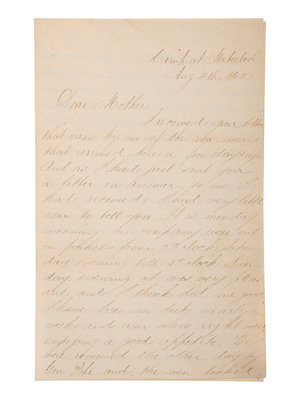 Camp at Waterloo
Aug 11th 1862
Dear Mother
I received your letter
that came by one of the new men
that arrived here a few days ago
And as I had just sent you
a letter in answer to one I
had received I had very little
news to tell you. It is monday
morning our company were out
on picket from 5 o'clock Satur
day evening till 5 o'clock Sun
day evening it was very pleas
ant, and I think did me good
I have been on duty nearly a
week and am now right well
enjoying a good appetite. We
were reviewed the other day by
Gen Pope and the men looked